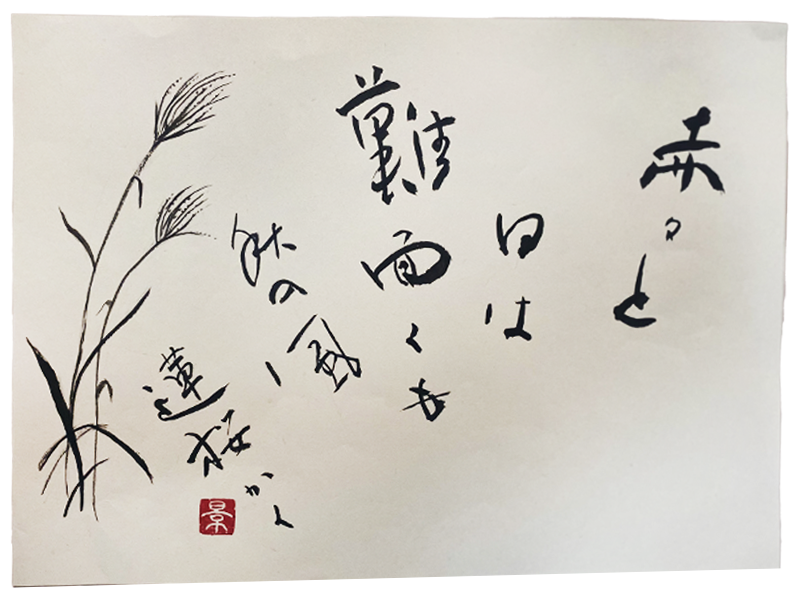 赤々と
日は
難面くも
秋の風
蓮桜かく
景